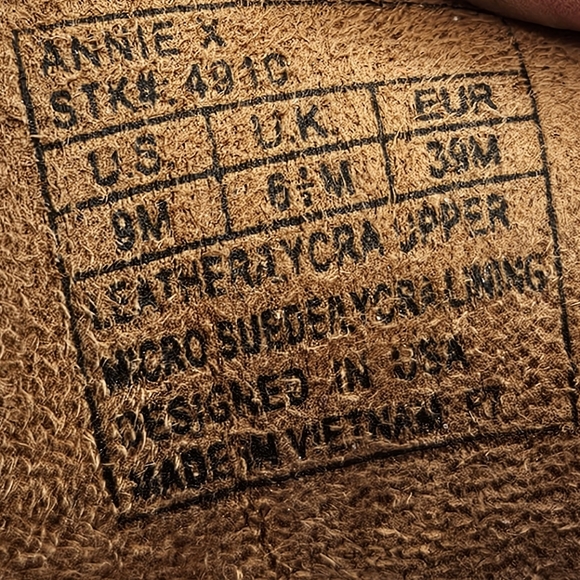 ANNIE X
STK#. 491C
U.S. U.K. EUR
9M 6½M 39M
LEATHER/LYCRA UPPER
MICRO SUEDE/LYCRA LINING
DESIGNED IN USA
MADE IN VIETNAM PT